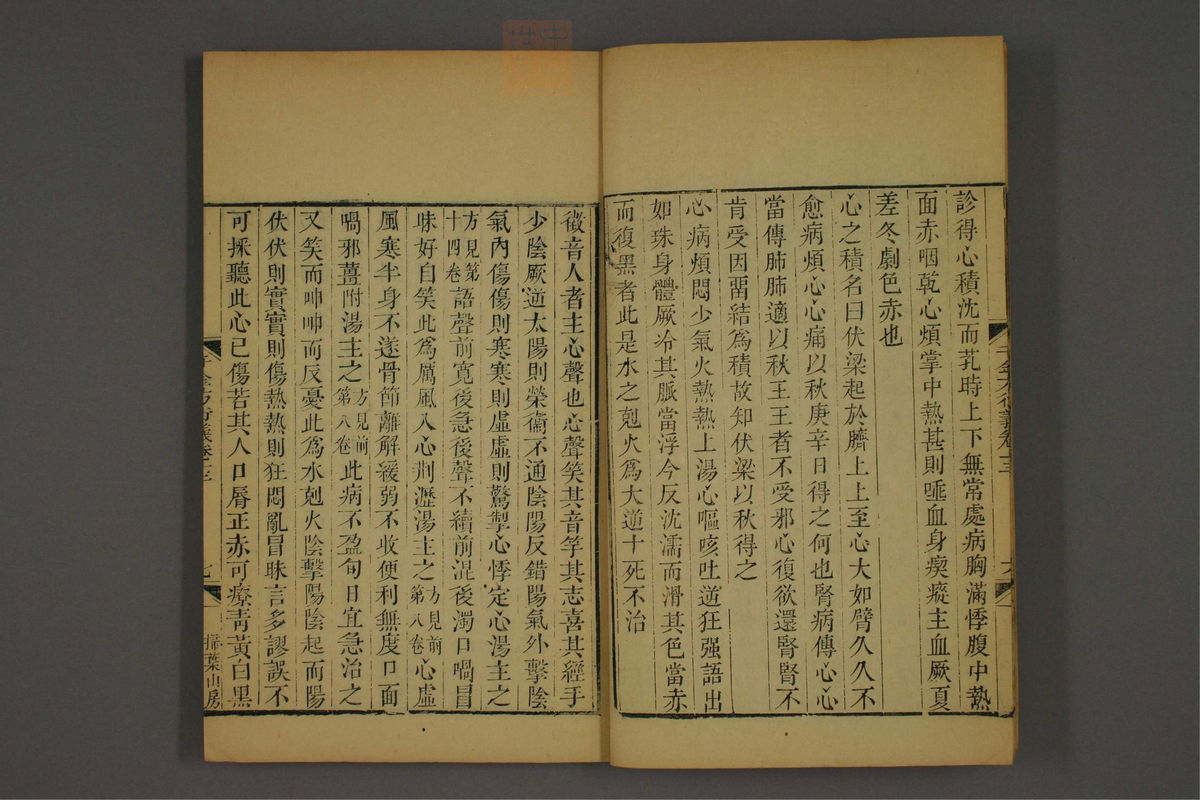 診得心積沈而芤時上下無常處病胸滿悸腹中熱
面赤咽乾心煩掌中熱甚則唾血身瘈瘲主血厥夏
差冬劇色赤也
心之積名曰伏梁起於臍上上至心大如臂久久不
愈病煩心心痛以秋庚辛日得之何也腎病傳心心
當傳肺肺適以秋王王者不受邪心復欲還腎腎不
肯受因畱結爲積故知伏梁以秋得之
心病煩悶少氣火熱熱上湯心嘔咳吐逆狂强語出
如珠身體厥冷其脈當浮今反沈濡而滑其色當赤
而復黑者此是水之剋火爲大逆十死不治
徵音人者主心聲也心聲笑其音竽其志喜其經手
少陰厥逆太陽則榮衞不通陰陽反錯陽氣外擊陰
氣內傷傷則寒寒則虛虛則驚掣心悸定心湯主之
方見第十四卷語聲前寛後急後聲不續前混後濁口喎冒
昧好自笑此爲厲風入心荆瀝湯主之方見前第八卷心虛
風寒半身不遂骨節離解緩弱不收便利無度口面
喎邪薑附湯主之方見前第八卷此病不盈旬日宜急治之
又笑而呻呻而反憂此爲水剋火陰擊陽陰起而陽
伏伏則實實則傷熱熱則狂悶亂冒昧言多謬誤不
可採聽此心已傷若其人口脣正赤可療靑黃白黑
千金方衍義卷十三
七
掃葉山房